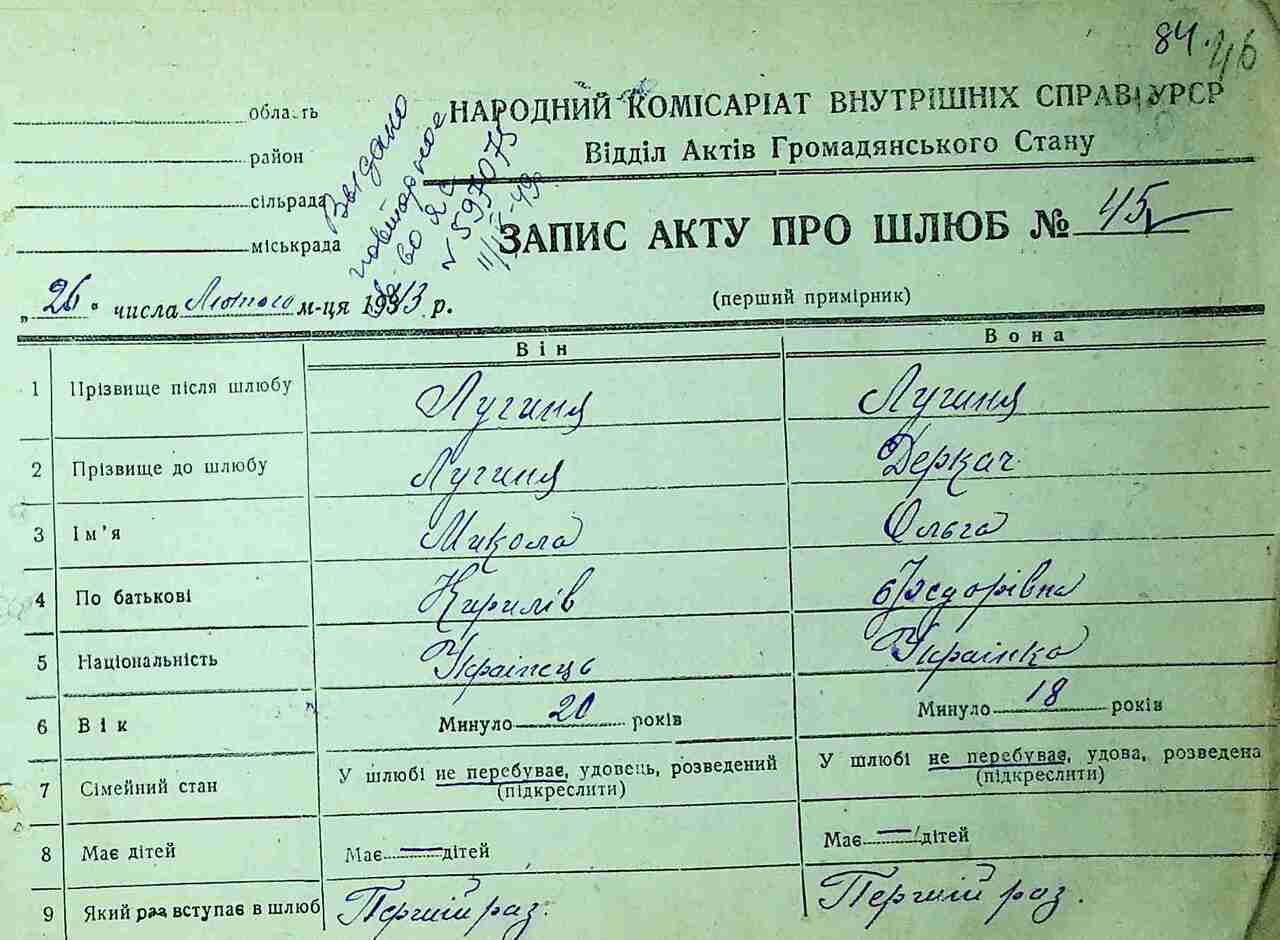 84. 46
область
район
сільрада
міськрада
НАРОДНИЙ КОМІСАРІАТ ВНУТРІШНІХ СПРАВ УРСР
Відділ Актів Громадянського Стану
Видано
повторное
св-во ЯС
№ 597075
ЗАПИС АКТУ ПРО ШЛЮБ № 45
„26" числа Лютого м-ця 1943 р.
(перший примірник)
Він Вона
1 Прізвище після шлюбу Лугиня Лугиня
2 Прізвище до шлюбу Лугиня Деркач
3 Ім'я Микола Ольга
4 По батькові Кирилів Федорівна
5 Національність Українець Українка
6 Вік Минуло 20 років Минуло 18 років
7 Сімейний стан У шлюбі не перебуває, удовець, розведений У шлюбі не перебуває, удова, розведена
(підкреслити) (підкреслити)
8 Має дітей Має — дітей Має — дітей
9 Який раз вступає в шлюб Перший раз. Перший раз.